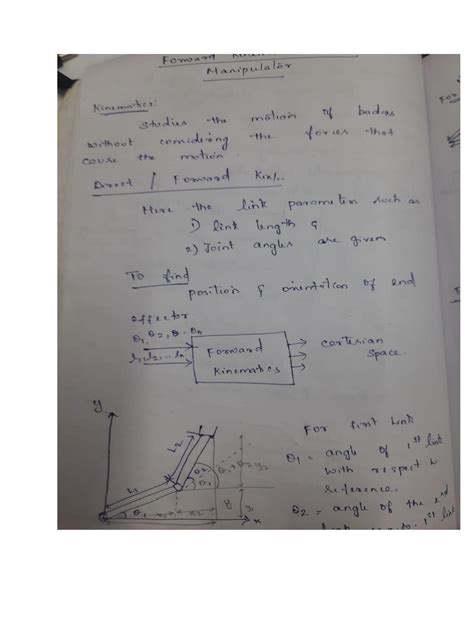 Forward
Manipulator
Kinematics:
Studies the motion of bodies
without considering the forces that
cause the motion.
Direct / Forward Kin/..
Here the link parameters such as
1) link length &
2) Joint angles are given
To find
position & orientation of end
effector
θ1, θ2, θ...θn
l1, l2, ... ln
Forward
Kinematics
cartesian
space.
y
L2
L1
θ2
θ1
θ1+θ2
y2
θ1
x1
x2
y
x
For first link
θ1 = angle of 1st link
with respect to
reference.
θ2 = angle of the 2nd
1st link